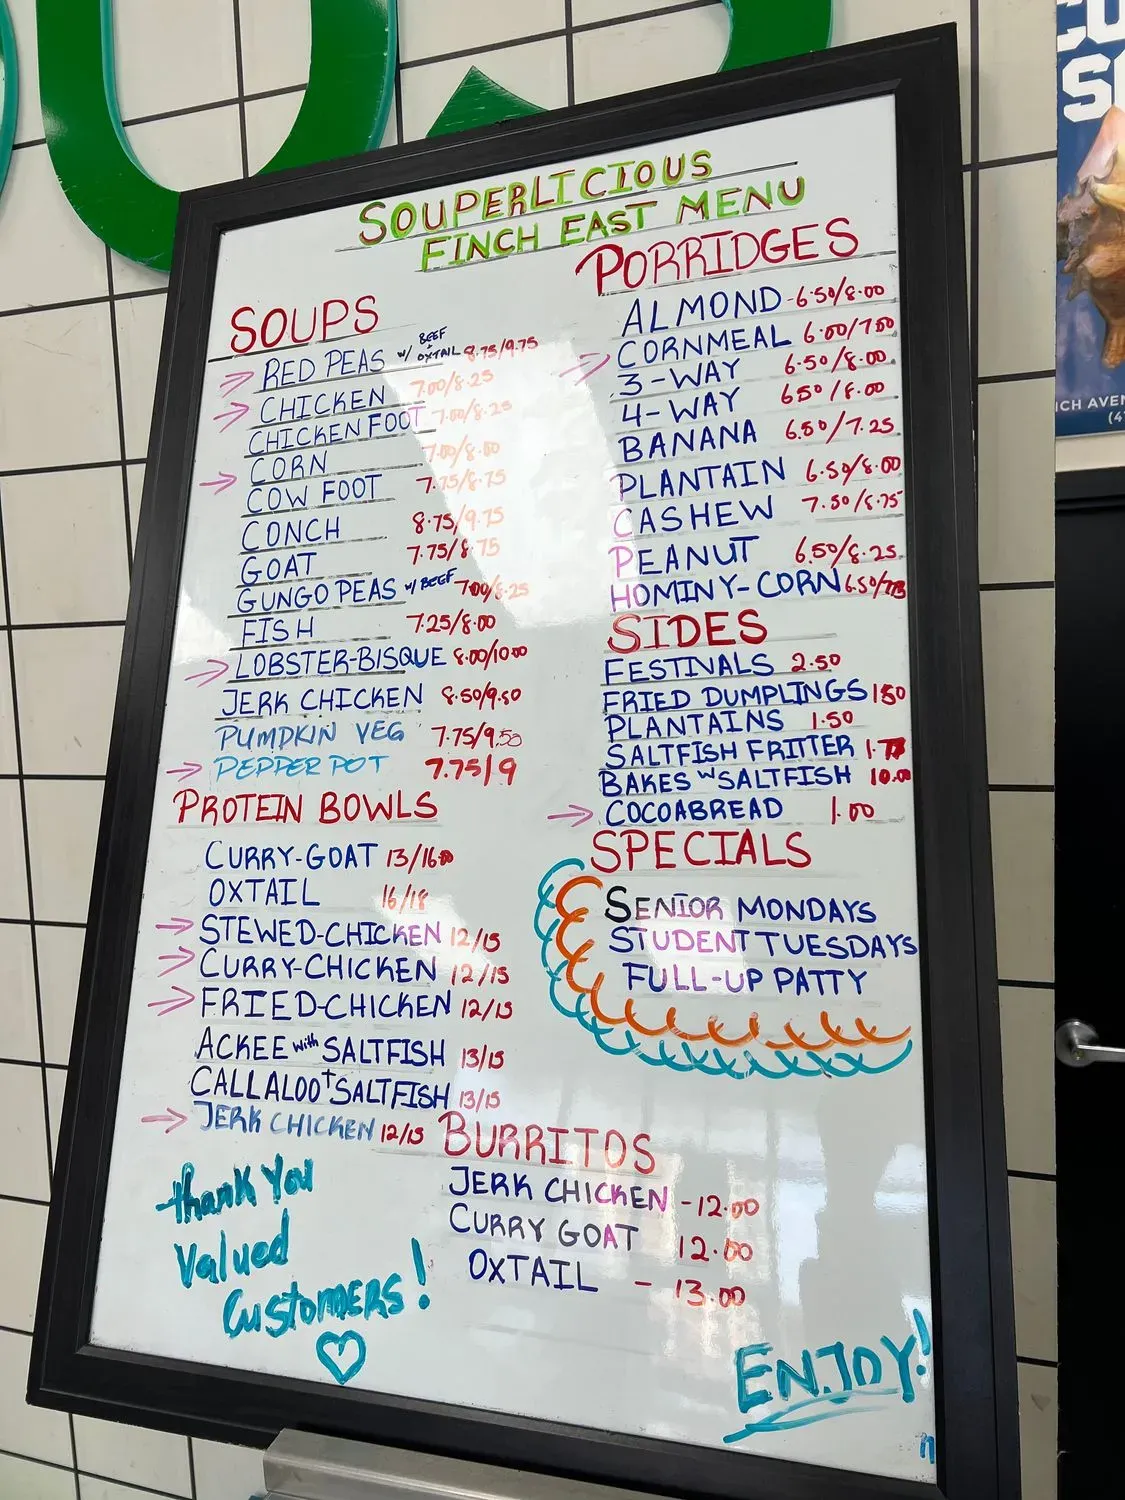 SOUPERLICIOUS
FINCH EAST MENU
SOUPS
RED PEAS w/ BEEF + OXTAIL 8.75/9.75
CHICKEN 7.00/8.25
CHICKEN FOOT 7.00/8.25
CORN 7.00/8.00
COW FOOT 7.75/8.75
CONCH 8.75/9.75
GOAT 7.75/8.75
GUNGO PEAS w/ BEEF 7.00/8.25
FISH 7.25/8.00
LOBSTER-BISQUE 8.00/10.00
JERK CHICKEN 8.50/9.50
PUMPKIN VEG 7.75/9.50
PEPPER POT 7.75/9
PROTEIN BOWLS
CURRY-GOAT 13/16.00
OXTAIL 16/18
STEWED-CHICKEN 12/15
CURRY-CHICKEN 12/15
FRIED-CHICKEN 12/15
ACKEE with SALTFISH 13/15
CALLALOO + SALTFISH 13/15
JERK CHICKEN 12/15
PORRIDGES
ALMOND - 6.50/8.00
CORNMEAL 6.00/7.00
3-WAY 6.50/8.00
4-WAY 6.50/8.00
BANANA 6.50/7.25
PLANTAIN 6.50/8.00
CASHEW 7.50/8.75
PEANUT 6.50/8.25
HOMINY-CORN 6.50/
SIDES
FESTIVALS 2.50
FRIED DUMPLINGS 1.50
PLANTAINS 1.50
SALTFISH FRITTER
BAKES w SALTFISH 10.00
COCOABREAD 1.00
SPECIALS
SENIOR MONDAYS
STUDENT TUESDAYS
FULL-UP PATTY
BURRITOS
JERK CHICKEN - 12.00
CURRY GOAT 12.00
OXTAIL - 13.00
thank You
Valued
Customers!
ENJOY!